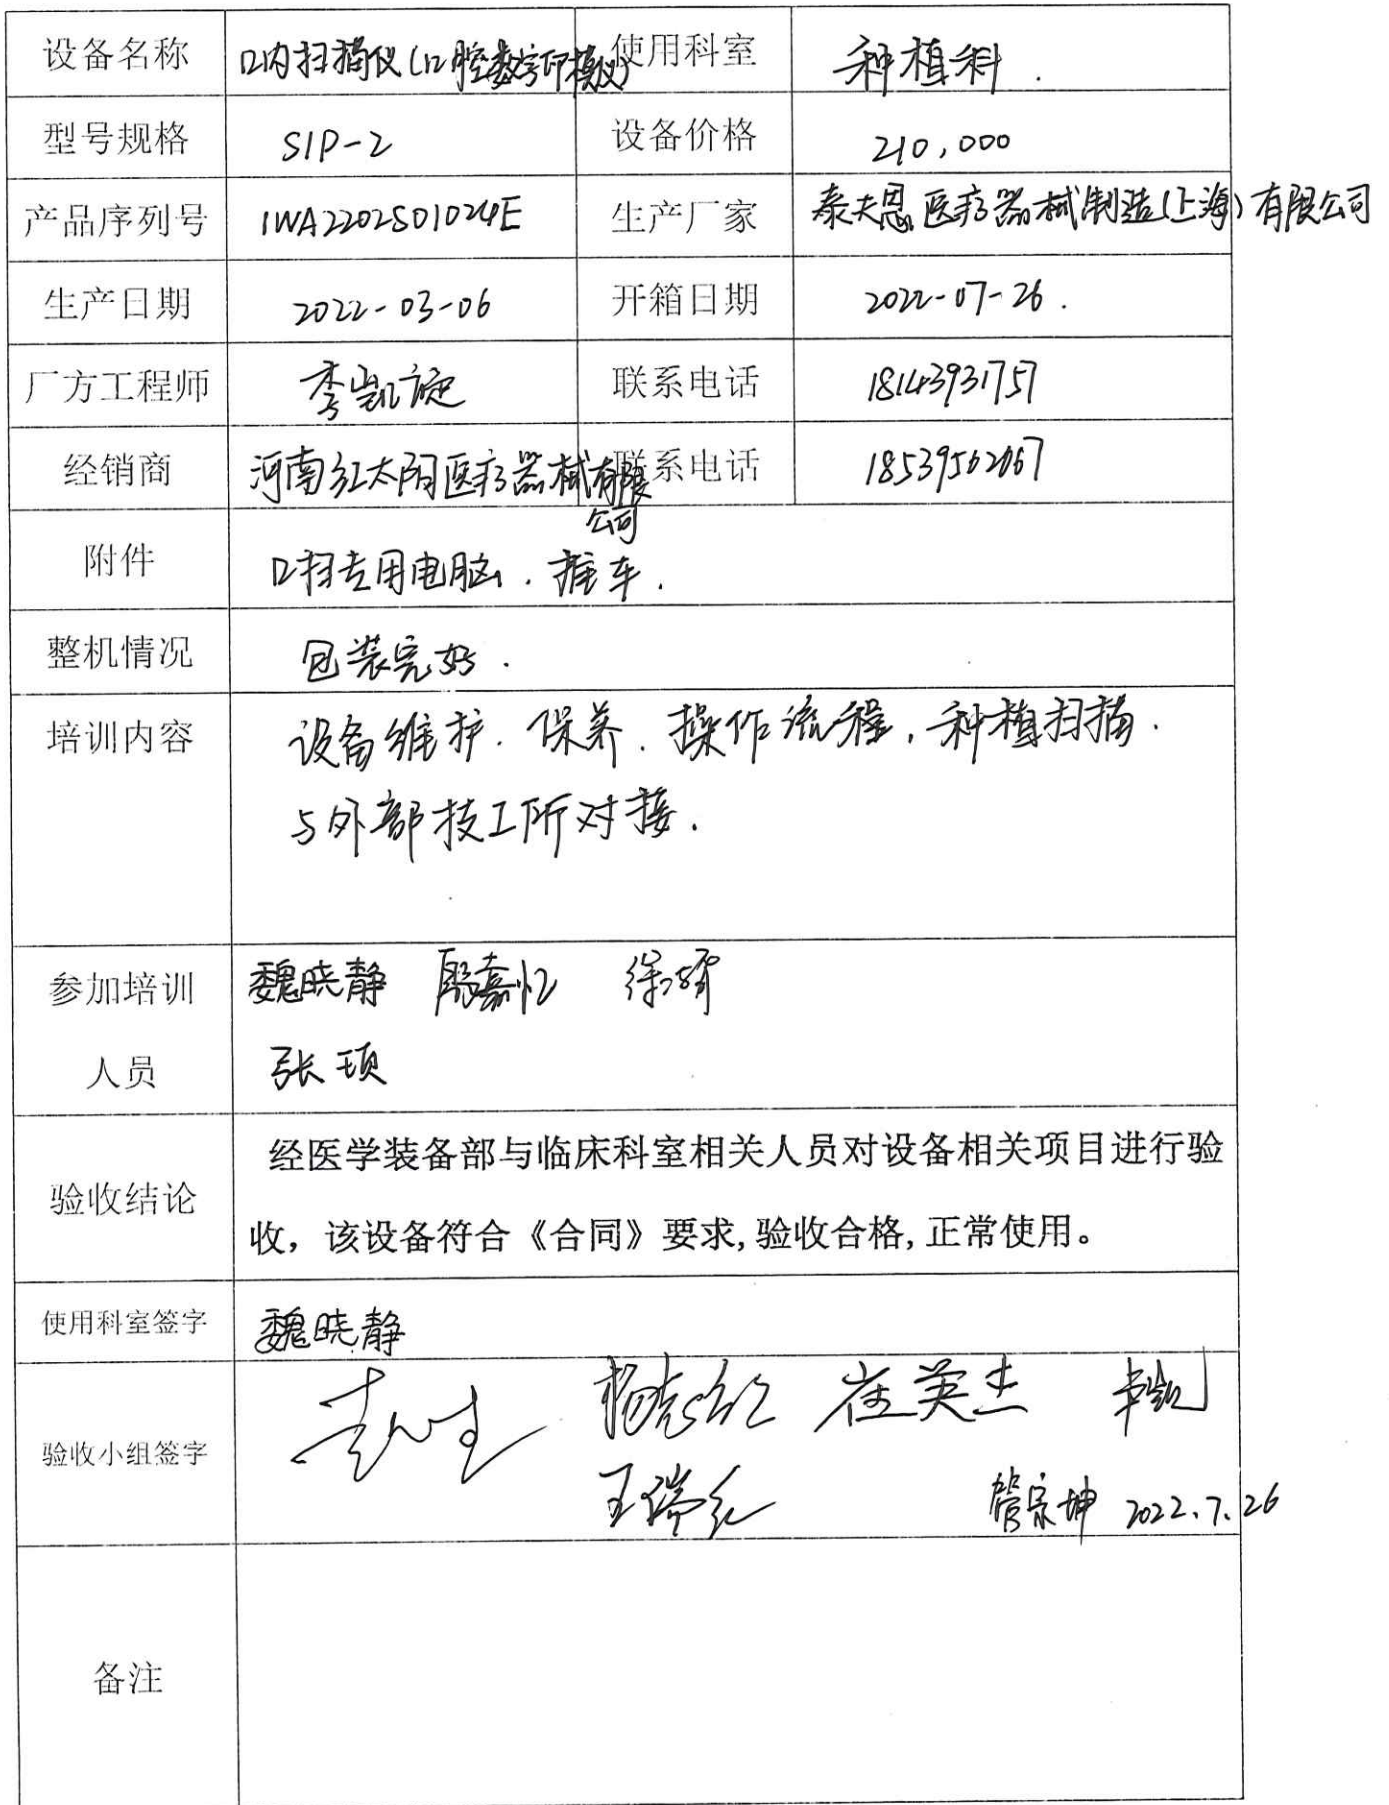 设备名称 口内扫描仪(口腔数字印模仪) 使用科室 种植科.
型号规格 SIP-2 设备价格 210,000
产品序列号 1WA2202S01024E 生产厂家 泰夫恩医疗器械制造(上海)有限公司
生产日期 2022-03-06 开箱日期 2022-07-26.
厂方工程师 李凯旋 联系电话 18143931757
经销商 河南红太阳医疗器械有限 联系电话 18539562667
公司
附件 口扫专用电脑.推车.
整机情况 包装完好.
培训内容 设备维护.保养.操作流程,种植扫描.
与外部技工所对接.
参加培训 魏晓静 殷嘉忆
人员 张顼
经医学装备部与临床科室相关人员对设备相关项目进行验
验收结论
收，该设备符合《合同》要求,验收合格,正常使用。
使用科室签字 魏晓静
崔英杰
验收小组签字
王瑞红 管宗坤 2022.7.26
备注